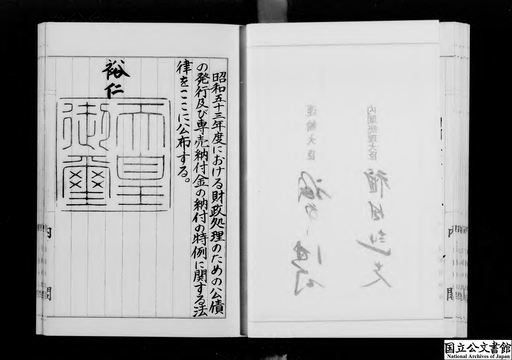 昭和五十三年度における財政処理のための公債
の発行及び専売納付金の納付の特例に関する法
律をここに公布する。
裕仁
天皇
御璽
内閣
内閣総理大臣
運輸大臣
国立公文書館
National Archives of Japan